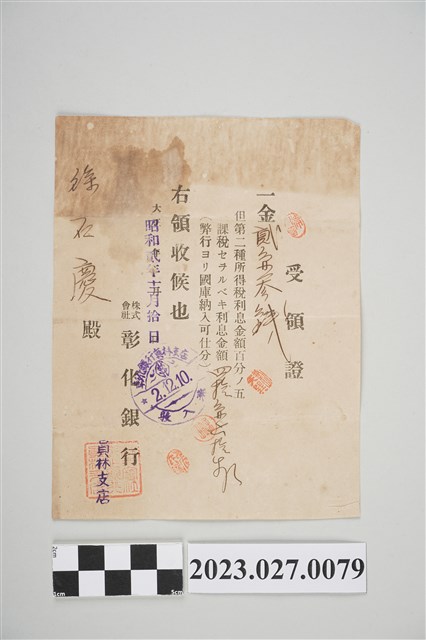 受領證
一金貳圓叁錢
但第二種所得税利息金額百分ノ五
課税セラルベキ利息金額四拾圓六拾錢
(弊行ヨリ國庫納入可仕分)
右領收候也
大
昭和貳年十二月拾日
株式會社彰化銀行
員林支店
徐石慶殿
2.12.10.
5cm
2023.027.0079